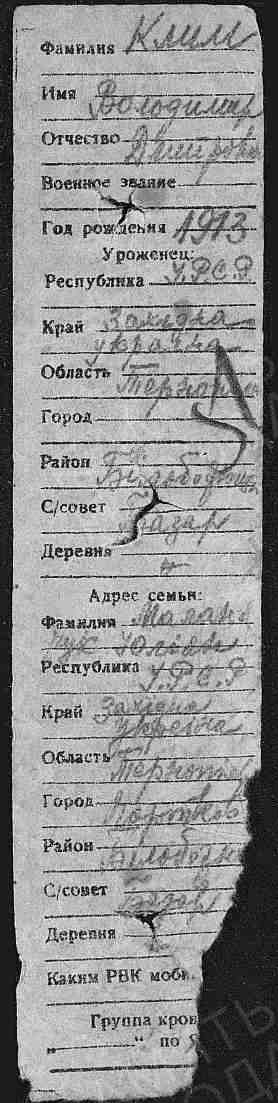 Фамилия Клим
Имя Володимир
Отчество Дмитрови
Военное звание
Год рождения 1913
Уроженец:
Республика У.Р.С.Р
Край Західна
україна
Область Тернопо
Город
Район Білобожн
С/совет Базар
Деревня "
Адрес семьи:
Фамилия Малан
чук Юльян
Республика У.Р.С.Р
Край Західна
Україна
Область Терноп
Город Чортков
Район Білобожн
С/совет Базар
Деревня
Каким РВК моби
Группа кров
„ “ по Я